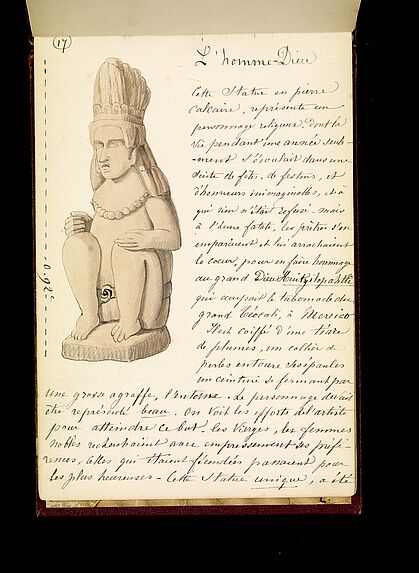 (17)
L'homme-Dieu
Cette Statue en pierre
calcaire, représente un
personnage religieux, dont la
vie pendant une année seule-
-ment s'écoulait dans une
suite de fêtes, de festins, et
d'honneurs inimaginables, et à
qui rien n'était refusé - mais
à l'heure fatale, les prêtres s'en
emparaient et lui arrachaient
le coeur, pour en faire hommage
au grand Dieu
qui occupait le tabernacle du
grand Téocali, à Mexico
Il est coiffé d'une tiare
de plumes, un collier de
perles entoure ses épaules
un ceinture se fermant par
une grosse agraffe, l'entoure. Le personnage devait
être représenté beau. On voit les efforts de l'artiste
pour atteindre ce but. les Vierges, les femmes
nobles recherchaient avec empressement ses préfé-
rences, Celles qui étaient fécondées passaient pour
les plus heureuses - Cette Statue unique, a été
0,92c